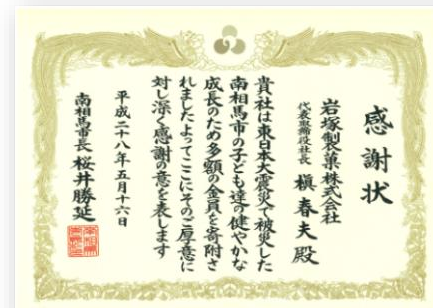 感謝状
岩塚製菓株式会社
代表取締役社長 槇春夫殿
貴社は東日本大震災で被災した
南相馬市の子ども達の健やかな
成長のため多額の金員を寄附さ
れましたよってここにそのご厚意に
対し深く感謝の意を表します
平成二十八年五月十六日
南相馬市長 桜井勝延